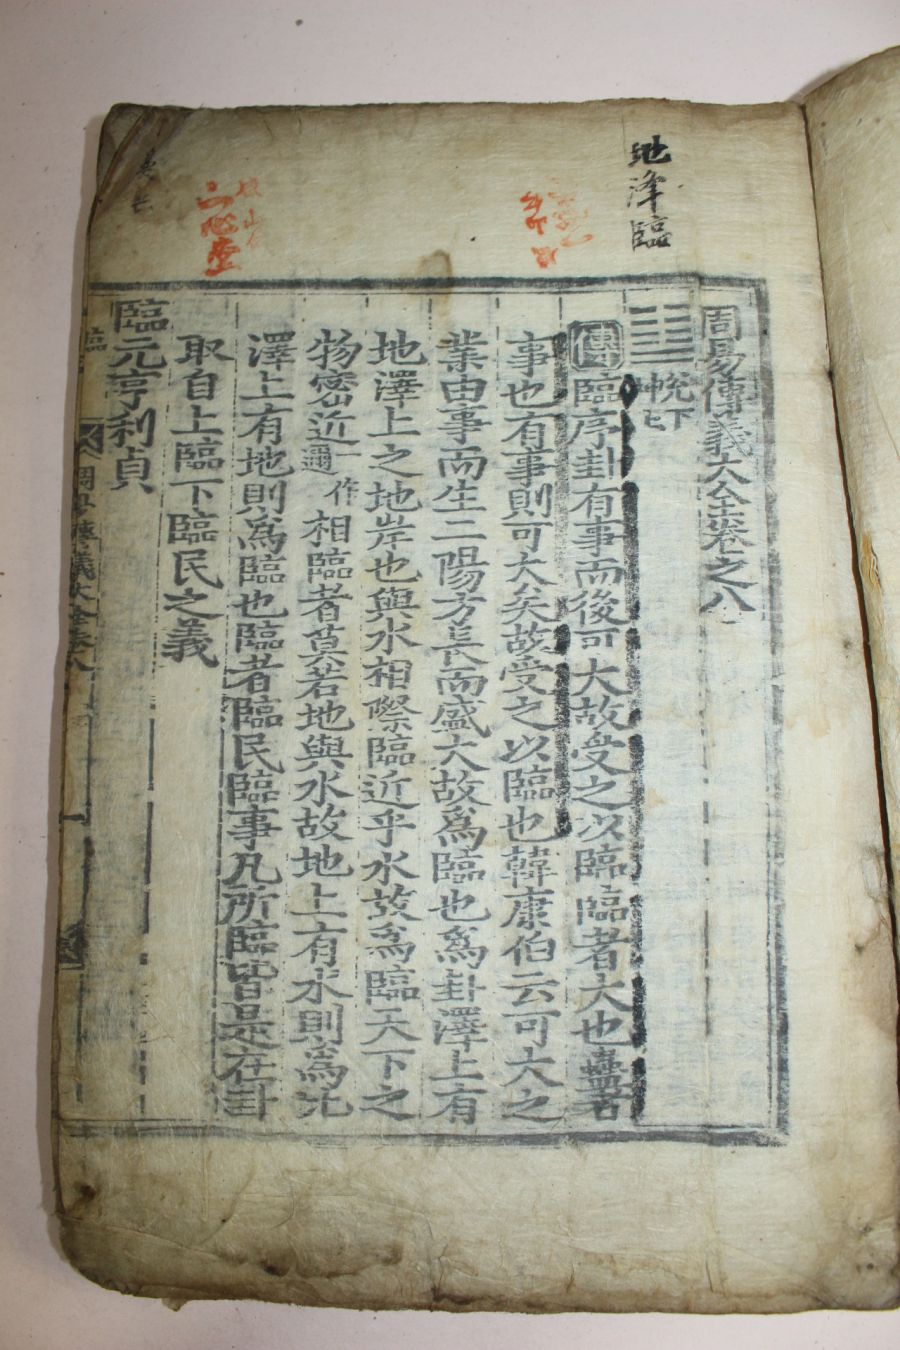 地澤臨
周易傳義大全卷之八
兌下
坤上
傳臨序卦有事而後可大故受之以臨臨者大也蠱者
事也有事則可大矣故受之以臨也韓康伯云可大之
業由事而生二陽方長而盛大故爲臨也爲卦澤上有
地澤上之地岸也與水相際臨近乎水故爲臨天下之
物密近一作邇相臨者莫若地與水故地上有水則爲比
澤上有地則爲臨也臨者臨民臨事凡所臨皆是在卦
取自上臨下臨民之義
臨元亨利貞
周易傳義大全卷八